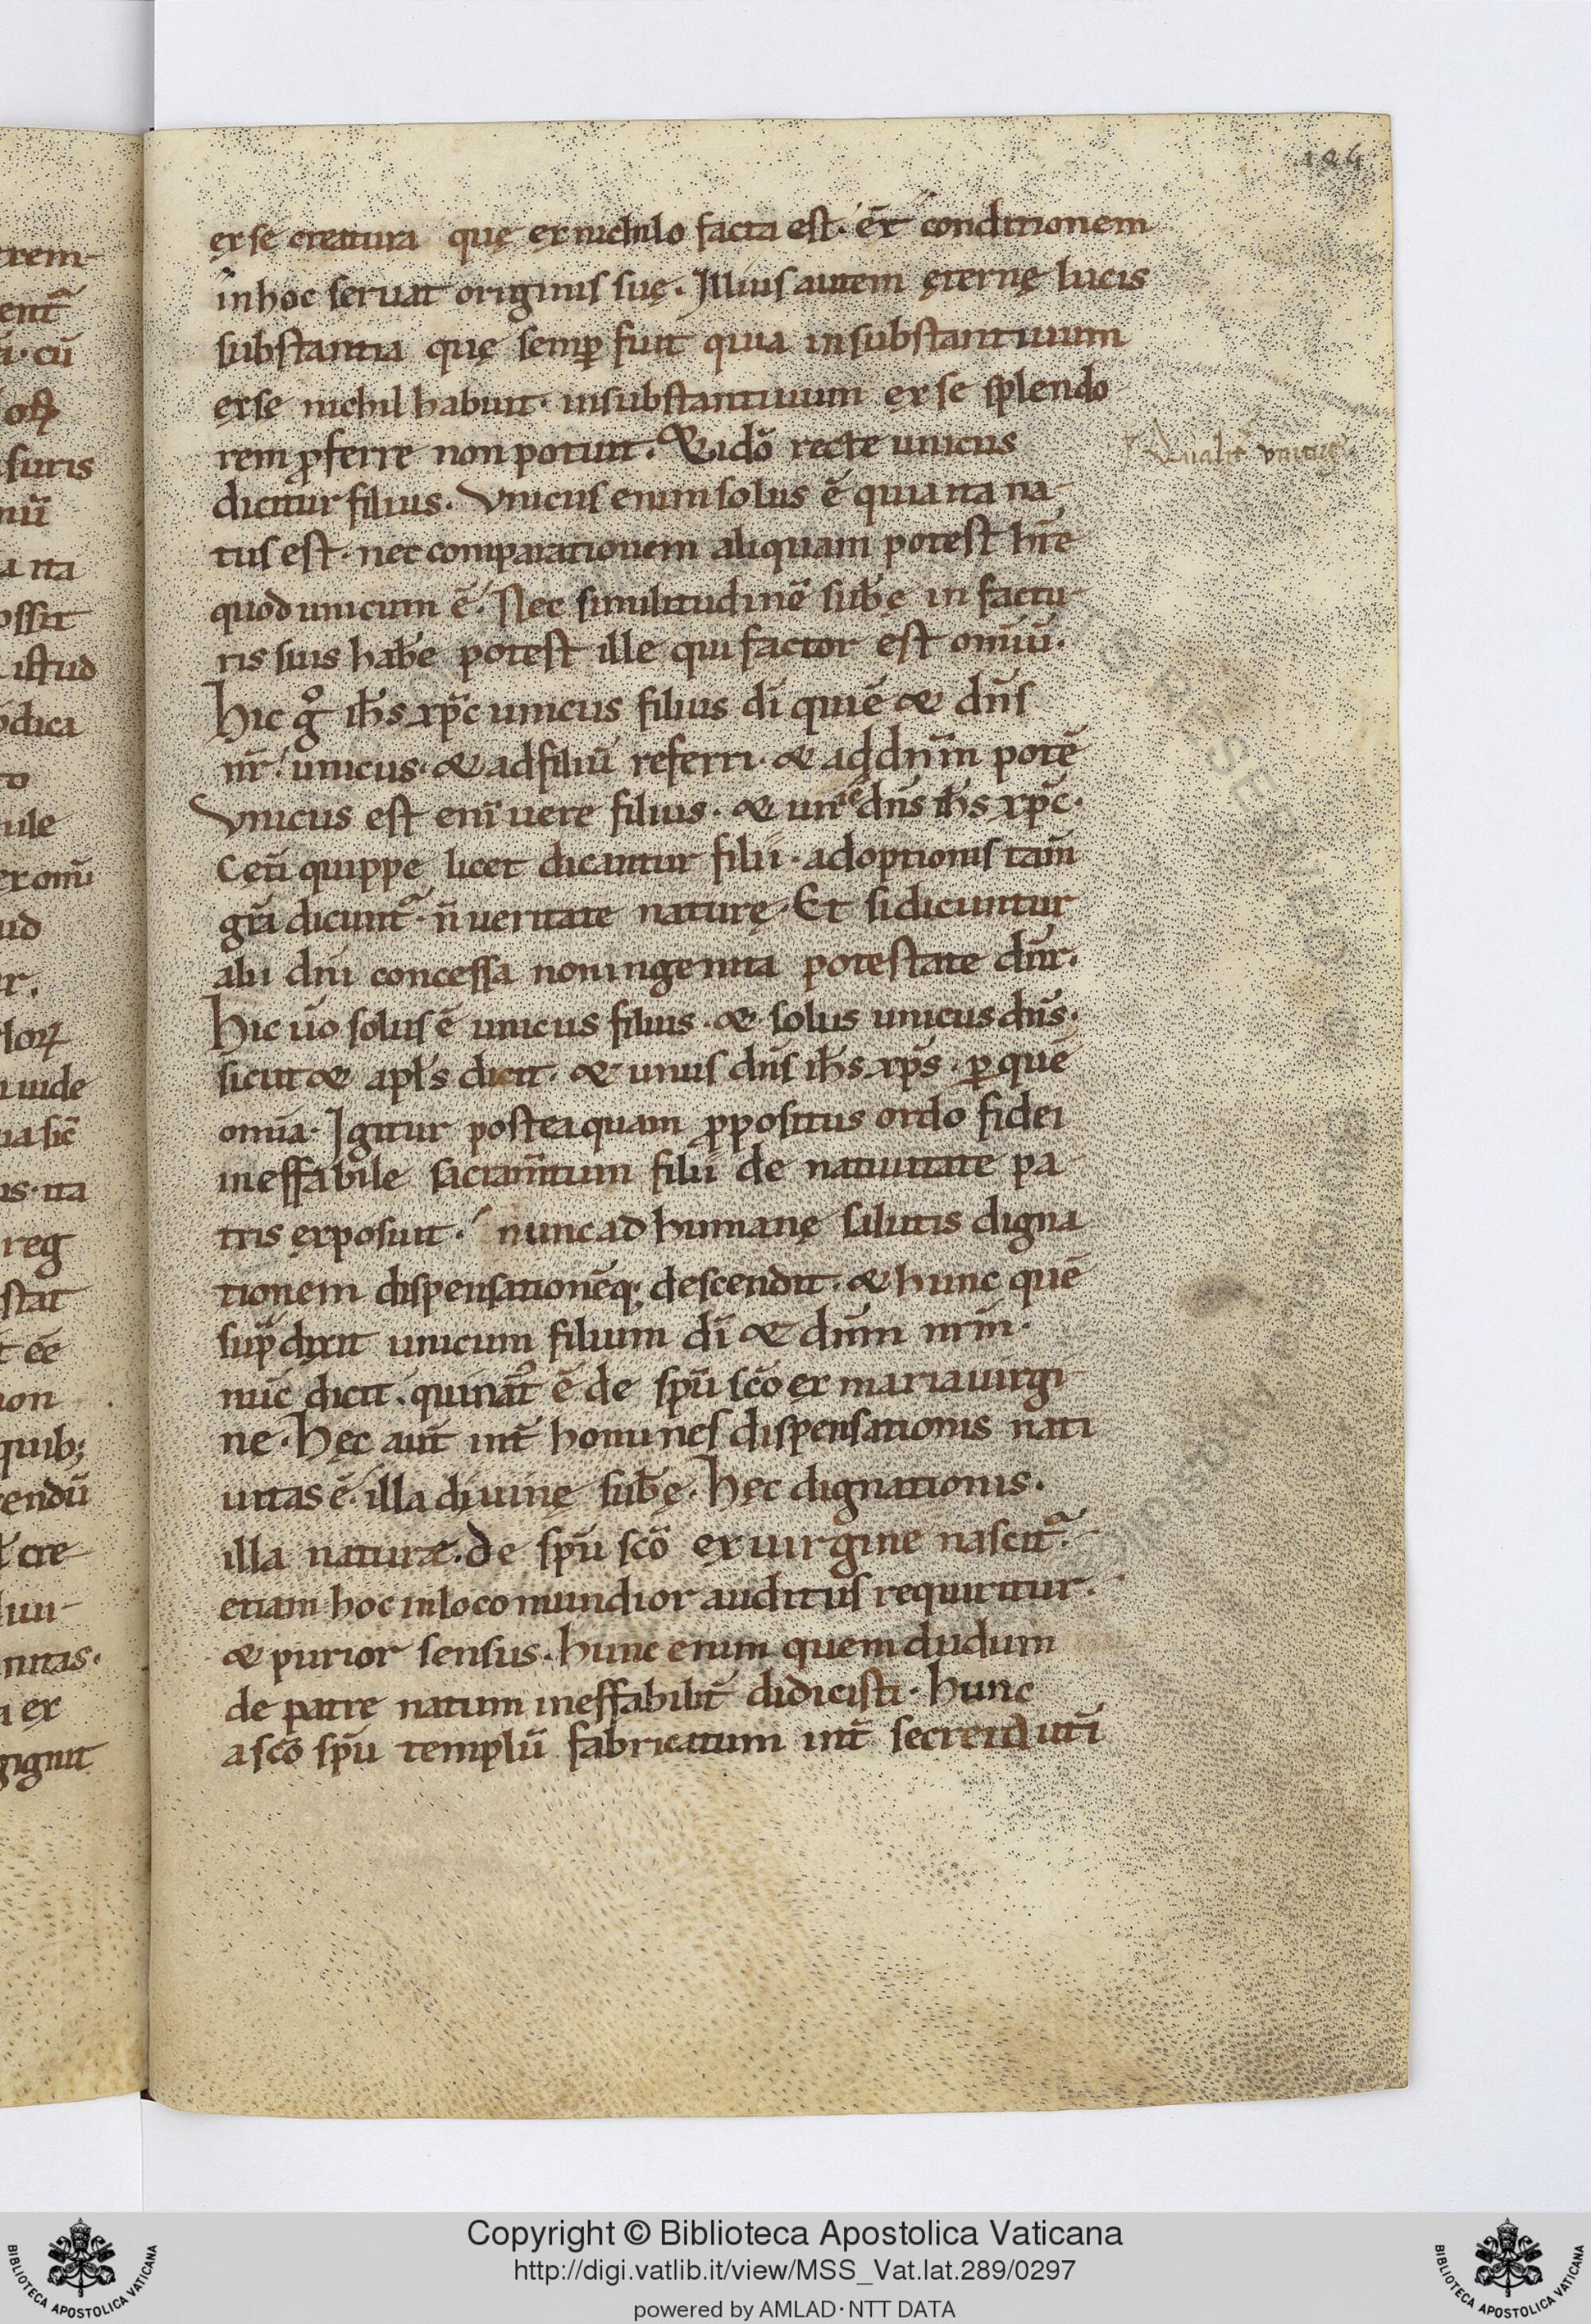 184
ex se creatura quę ex nichilo facta est. et̄ conditionem
in hoc seruat originis suę. Illius autem ęternę lucis
substantia quę semꝑ fuit quia insubstantiuum
ex se nichil habuit. insubstantiuum ex se splendo
rem ꝓferre non potuit. & idō recte unicus
dicitur filius. Vnicus enim solus ē quia ita na-
tus est. nec comparationem aliquam potest hr̄e
quod unicum ē. Nec similitudinē sub̄ę in factu-
ris suis hab̄e potest ille qui factor est omīū.
Hic gͦ ih̄s xp̄c unicus filius dī qui ē & dn̄s
nr̄. unicus. & ad filiū referri. & ad dn̄m potē
Vnicus est eni̅ uere filius. & un̄ dn̄s ih̄s xp̄c.
Cet̄i quippe licet dicantur filii. adoptionis tam̄
gr̄a dicunt᷑. n̄ ueritate naturę. Et si dicuntur
alii dn̄i concessa non ingenita potestate dn̄r.
Hic ūo solus ē unicus filius. & solus unicus dn̄s.
sicut & apl̄s dicit. & unus dn̄s ih̄s xp̄s. ꝑ quē
omīa. Igitur posteaquam ꝓpositus ordo fidei
ineffabile sacram̄tum filii de natiuitate pa-
tris exposuit. nunc ad humanę salutis digna
tionem dispensationēq; descendit. & hunc quē
sup̄ dixit unicum filium dī & dn̄m nr̄m.
nūc dicit. qui nat᷒ ē de sp̄u sc̄o ex maria uirgi-
ne. Hęc aut̄ int̄ homines dispensationis nati
uitas ē. illa diuinę sub̄ę. Hęc dignationis.
illa naturæ. De sp̄u sc̄o ex uirgine nascit᷑.
etiam hoc in loco mundior auditus requiritur.
& purior sensus. hunc enim quem dudum
de patre natum ineffabilit̄ didicisti. hunc
a sc̄o sp̄u templū fabricatum int̄ secreta ut̄i
Qualit̄ vnicus
Copyright © Biblioteca Apostolica Vaticana
http://digi.vatlib.it/view/MSS_Vat.lat.289/0297
powered by AMLAD·NTT DATA
BIBLIOTECA APOSTOLICA VATICANA
BIBLIOTECA APOSTOLICA VATICANA